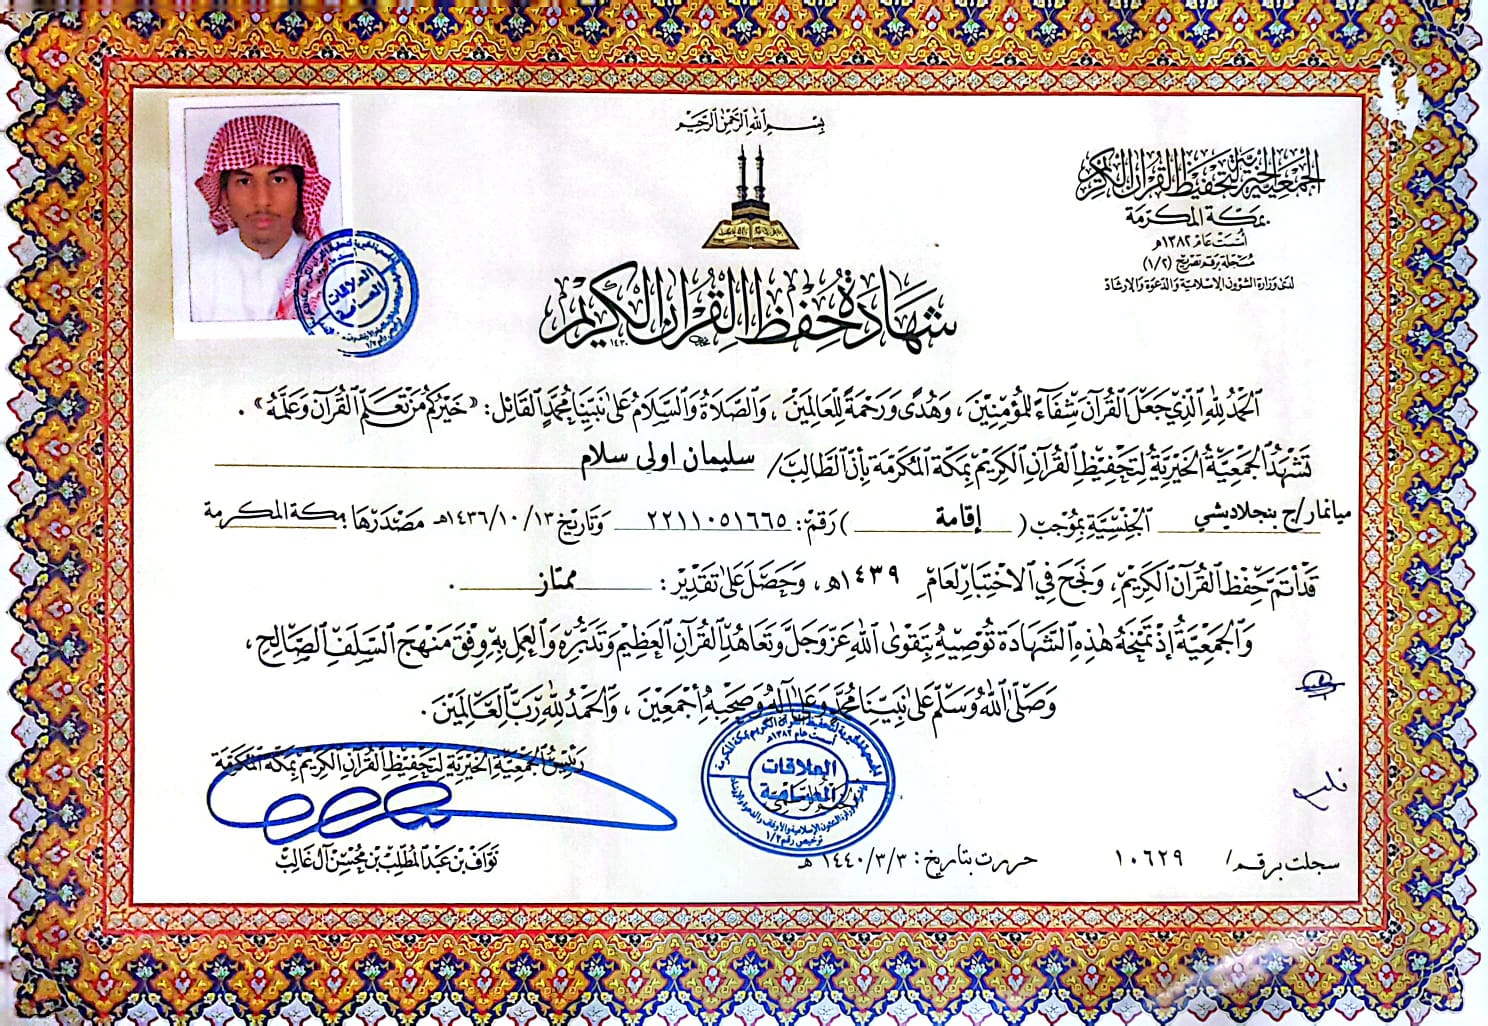 بِسْمِ اللَّهِ الرَّحْمَنِ الرَّحِيمِ
الجمعيّة الخيريّة لتحفيظ القرآن الكريم
بمكة المكرمة
أُسّست عام ١٣٨٢هـ
مسجلة برقم تصريح (١/٢)
لدى وزارة الشؤون الإسلامية والدعوة والإرشاد
شهادة حفظ القرآن الكريم
١٤٣٠
الحمد لله الذي جعل القرآن شفاء للمؤمنين، وهدى ورحمة للعالمين، والصلاة والسلام على نبينا محمد القائل: «خيركم من تعلم القرآن وعلمه».
تشهد الجمعية الخيرية لتحفيظ القرآن الكريم بمكة المكرمة بأن الطالب/ سليمان اولى سلام
ميانمار/ج بنجلاديشي الجنسية بموجب ( إقامة ) رقم: ٢٢١١٠٥١٦٦٥ وتاريخ ١٤٣٦/١٠/١٣هـ مصدرها: مكة المكرمة
قد أتم حفظ القرآن الكريم، ونجح في الاختبار لعام ١٤٣٩هـ، وحصل على تقدير: ممتاز.
والجمعية إذ تمنحه هذه الشهادة توصيه بتقوى الله عز وجل وتعاهد القرآن العظيم وتدبره والعمل به وفق منهج السلف الصالح،
وصلى الله وسلم على نبينا محمد وعلى آله وصحبه أجمعين، والحمد لله رب العالمين.
رئيس الجمعية الخيرية لتحفيظ القرآن الكريم بمكة المكرمة
نواف بن عبد المطلب بن محسن آل غالب
أسست عام ١٣٨٢هـ
العلاقات
العامة
ترخيص رقم ١/٢
حررت بتاريخ: ١٤٤٠/٣/٣ هـ
سجلت برقم/ ١٠٦٢٩
العلاقات
العامة